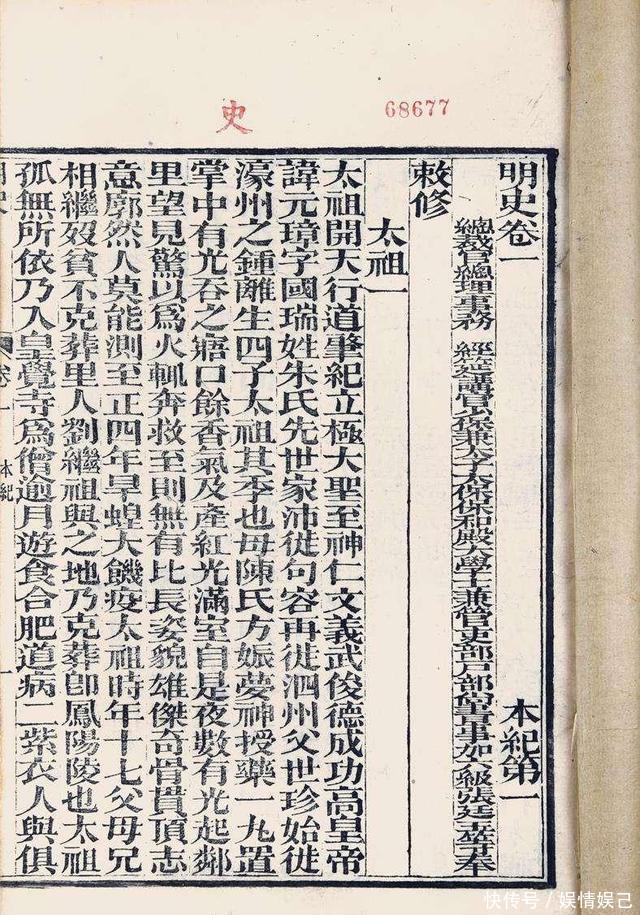 史
68677
明史卷一 本紀第一
總裁官總理事務 經筵講官少保兼太子太保保和殿大學士兼管吏部戶部尚書事加六級張廷玉等奉
敕修
太祖一
太祖開天行道肇紀立極大聖至神仁文義武俊德成功高皇帝
諱元璋字國瑞姓朱氏先世家沛徙句容再徙泗州父世珍始徙
濠州之鍾離生四子太祖其季也母陳氏方娠夢神授藥一丸置
掌中有光吞之寤口餘香氣及產紅光滿室自是夜數有光起鄰
里望見驚以爲火輒奔救至則無有比長姿貌雄傑奇骨貫頂志
意廓然人莫能測至正四年旱蝗大饑疫太祖時年十七父母兄
相繼歿貧不克葬里人劉繼祖與之地乃克葬卽鳳陽陵也太祖
孤無所依乃入皇覺寺爲僧逾月遊食合肥道病二紫衣人與俱
卷一 本紀 一
快传号/娱情娱己